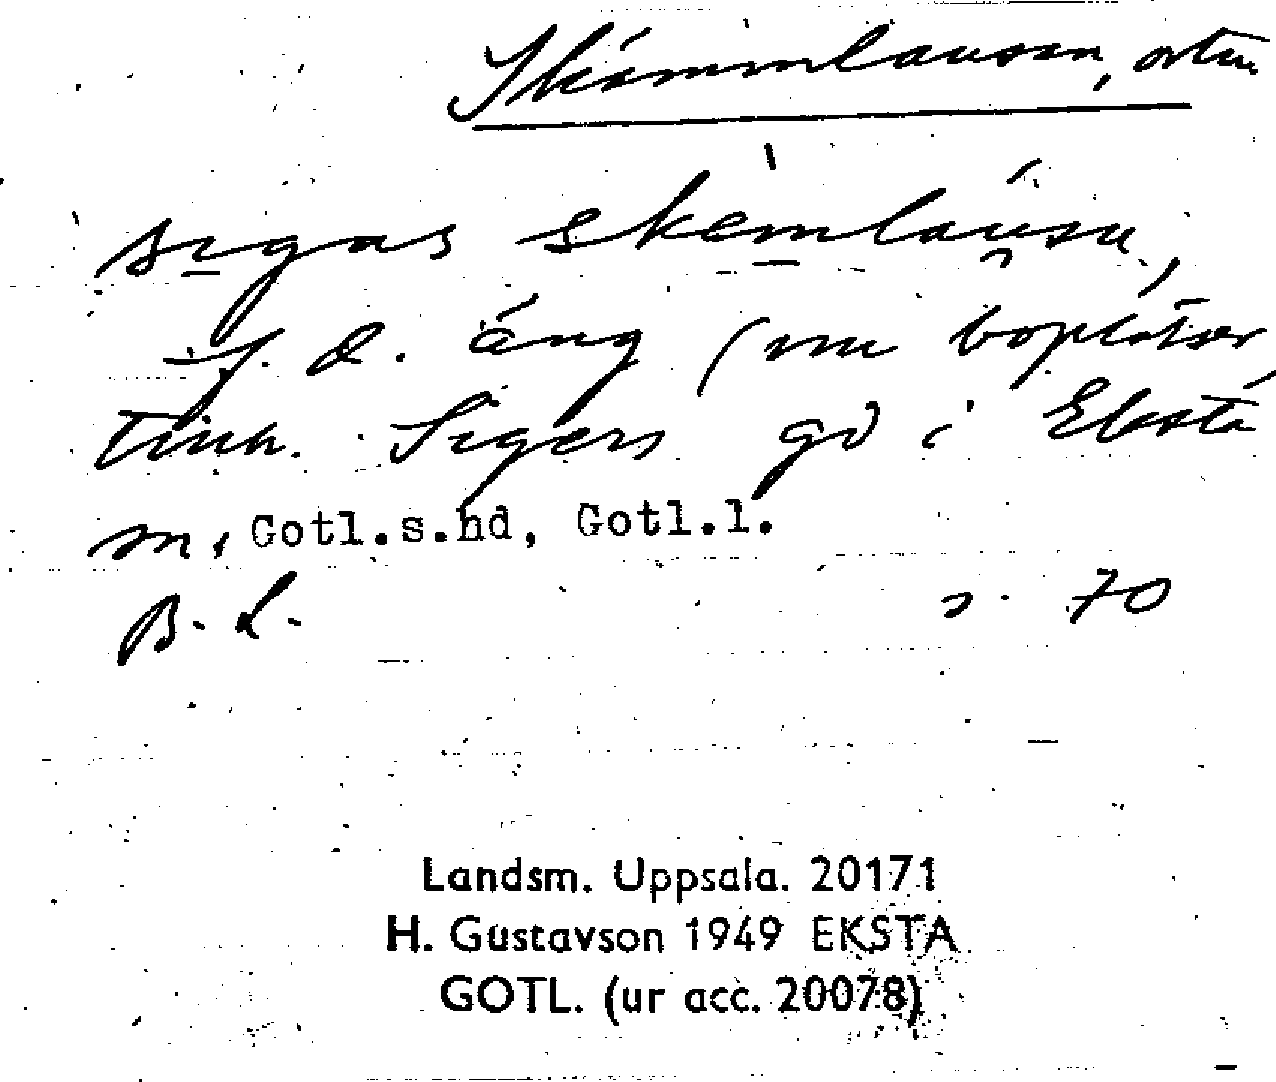 Skämmlausan, ortn.
sigas skemlausu,
f. d. äng (nu boplatser
till. Sigers gd i Eksta
sn, Gotl.s.hd, Gotl.l.
B. L. s. 70
Landsm. Uppsala. 20171
H. Gustavson 1949 EKSTA
GOTL. (ur acc. 20078)